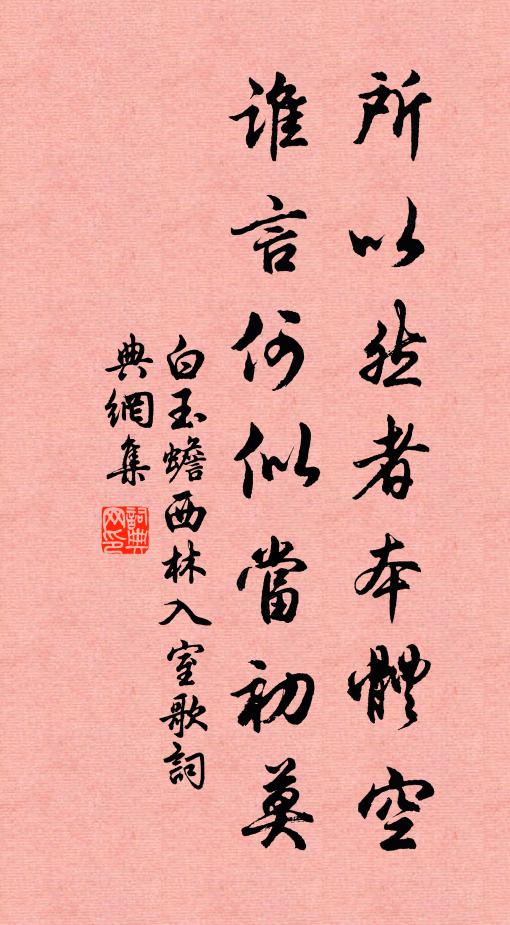 所以然者本體空
誰言何似當初莫
白玉蟾西林入室歌詞
典網集
詞典
网印